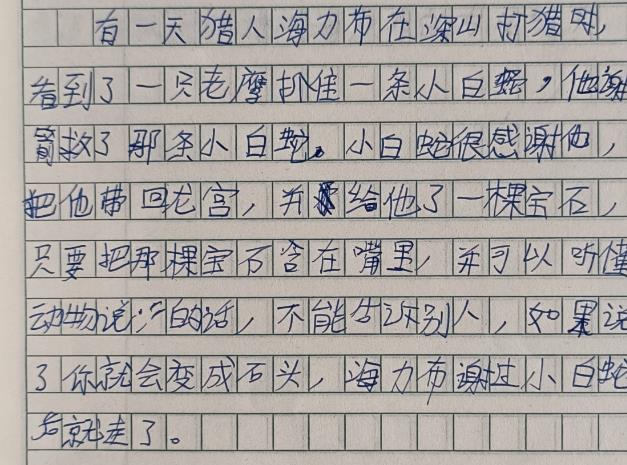 有一天猎人海力布在深山打猎时，
看到了一只老摩抓住一条小白蛇，他谢
箭救了那条小白蛇。小白蛇很感谢他，
把他带回龙宫，并给他了一棵宝石，
只要把那棵宝石含在嘴里，并可以听懂
动物说的话，不能告诉别人，如果说
了你就会变成石头，海力布谢过小白蛇
后就走了。